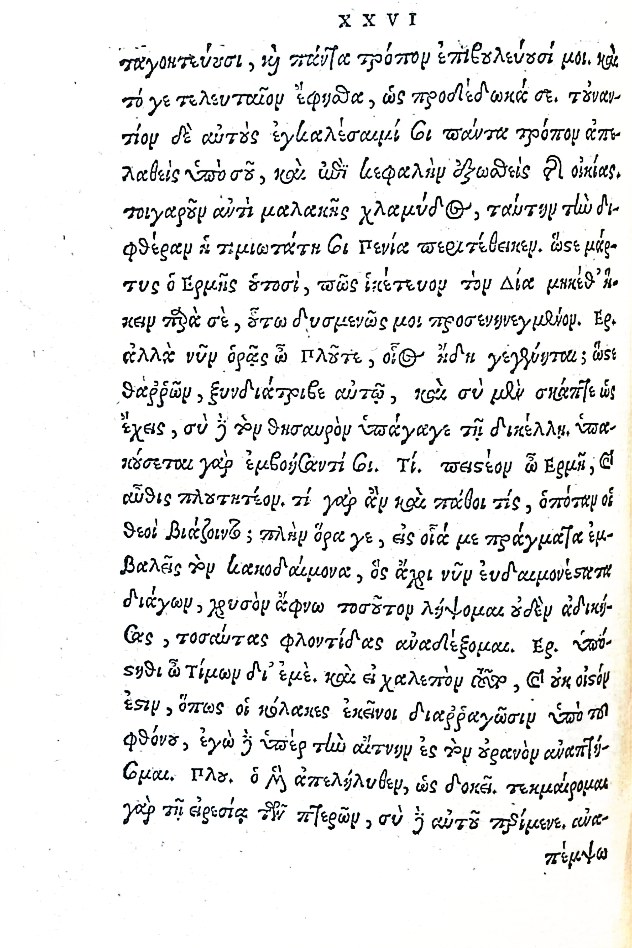 XXVI
ταγοητεύουσι, καὶ πάντα τρόπον ἐπιβουλεύουσί μοι. καὶ
τό γε τελευταῖον ἔφησθα, ὡς προδέδωκά σε. τοὐναν-
τίον δὲ αὐτὸς ἐγκαλέσαιμί σοι πάντα τρόπον ἀπε-
λαθεὶς ὑπὸ σοῦ, καὶ ἐπὶ κεφαλὴν ἐξωθεὶς τῆς οἰκίας.
τοιγαροῦν αὐτὶ μαλακῆς χλαμύδος, ταύτην τὴν δι-
φθέραν ἡ τιμιωτάτη σοι Πενία περιτέθεικεν. ὥστε μάρ-
τυς ὁ Ερμῆς οὑτοσὶ, πῶς ἱκέτευον τὸν Δία μηκέθ' ἥ-
κειν παρὰ σὲ, οὕτω δυσμενῶς μοι προσενηνεγμένον. Ερ.
ἀλλὰ νῦν ὁρᾷς ὦ Πλοῦτε, οἷος ἤδη γεγένηται; ὥστε
θαῤῥῶν, ξυνδιάτριβε αὐτῷ, καὶ σὺ μὲν σκάπτε ὡς
ἔχεις, σὺ δὲ τὸν θησαυρὸν ὑπάγαγε τῇ δικέλλῃ. ὑπα-
κούσεται γὰρ ἐμβοήσαντί σοι. Τί. πειστέον ὦ Ερμῆ, καὶ
αὖθις πλουτητέον. τί γὰρ ἂν καὶ πάθοι τίς, ὁπόταν οἱ
θεοὶ βιάζοιντο; πλὴν ὅρα γε, εἰς οἷά με πράγματα ἐμ-
βαλεῖς τὸν κακοδαίμονα, ὃς ἄχρι νῦν ευδαιμονέστατα
διάγων, χρυσὸν ἄφνω τοσοῦτον λήψομαι οὐδὲν ἀδική-
σας, τοσαύτας φλοντίδας ἀναδέξομαι. Ερ. ὑπό-
στηθι ὦ Τίμων δι' ἐμὲ. καὶ εἰ χαλεπὸν τοῦτο, καὶ οὐκ οἰστόν
ἐστιν, ὅπως οἱ κόλακες ἐκεῖνοι διαῤῥαγῶσιν ὑπὸ τοῦ
φθόνου, ἐγὼ δὲ ὑπὲρ τὴν αἴτνην ἐς τὸν οὐρανὸν ἀναπτή-
σομαι. Πλου. ὁ μὲν ἀπελήλυθεν, ὡς δοκεῖ. τεκμαίρομαι
γὰρ τῇ εἰρεσίᾳ τῶν πτερῶν, σὺ δὲ αὐτοῦ πρίμενε. ἀνα-
πέμψω